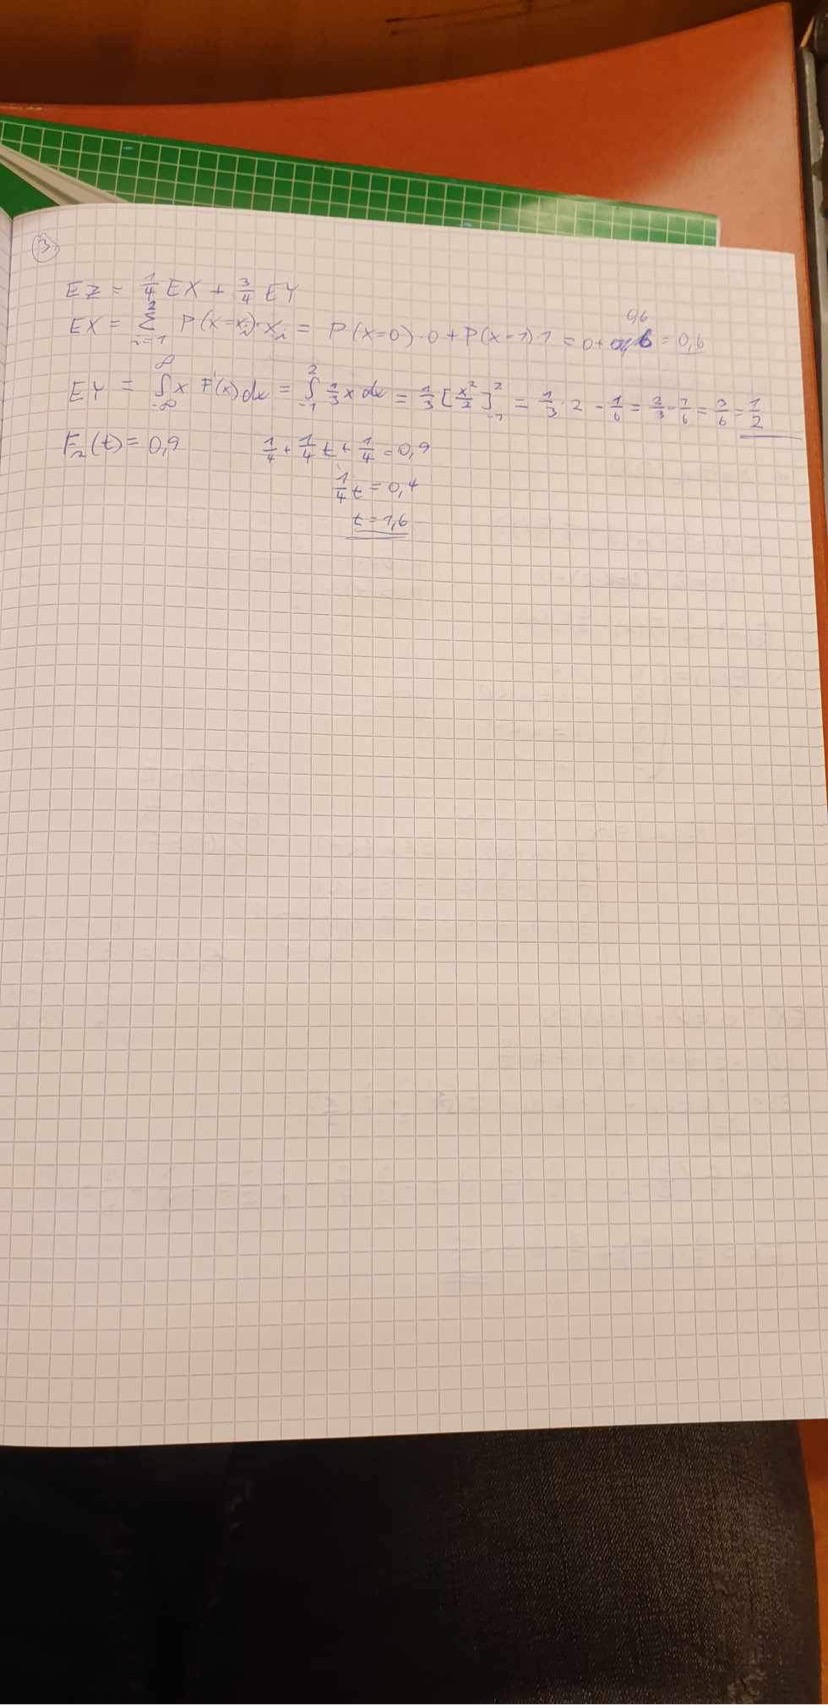 3.
EZ = 1/4 EX + 3/4 EY
0,6
EX = ∑_{i=1}^{2} P(x=x_i)·x_i = P(x=0)·0 + P(x=1)1 = 0 + 6 = 0,6
EY = ∫_{-∞}^{∞} x F'(x)dx = ∫_{-1}^{2} 1/3 x dx = 1/3 [x²/2]_{-1}^{2} = 1/3 · 2 - 1/6 = 2/3 - 1/6 = 3/6 = 1/2
F_z(t) = 0,9 1/4 + 1/4 t + 1/4 = 0,9
1/4 t = 0,4
t = 1,6